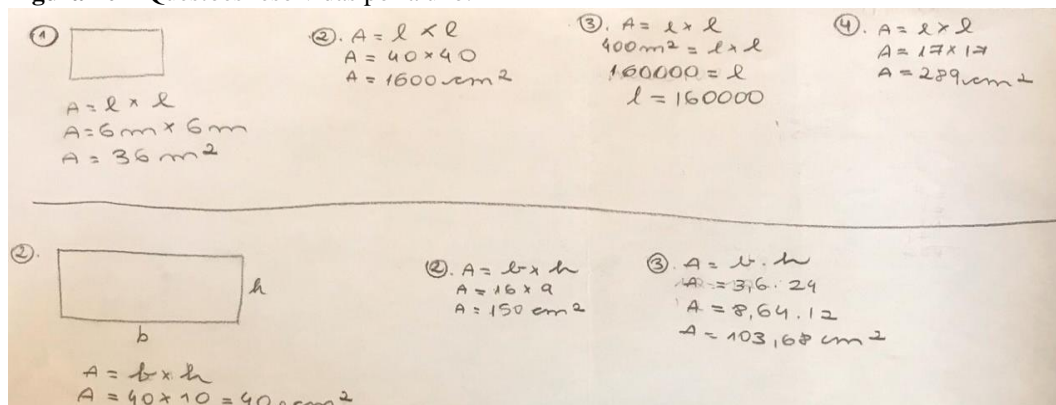 ① A = l × l
A = 6m × 6m
A = 36 m²
②. A = l × l
A = 40 × 40
A = 1600 cm²
③. A = l × l
400m² = l × l
160000 = l
l = 160000
④. A = l × l
A = 17 × 17
A = 289 cm²
②.
h
b
A = b × h
A = 40 × 10 = 400 cm²
②. A = b × h
A = 16 × 9
A = 150 cm²
③. A = b . h
A = 3,6 . 24
A = 8,64 . 12
A = 103,68 cm²